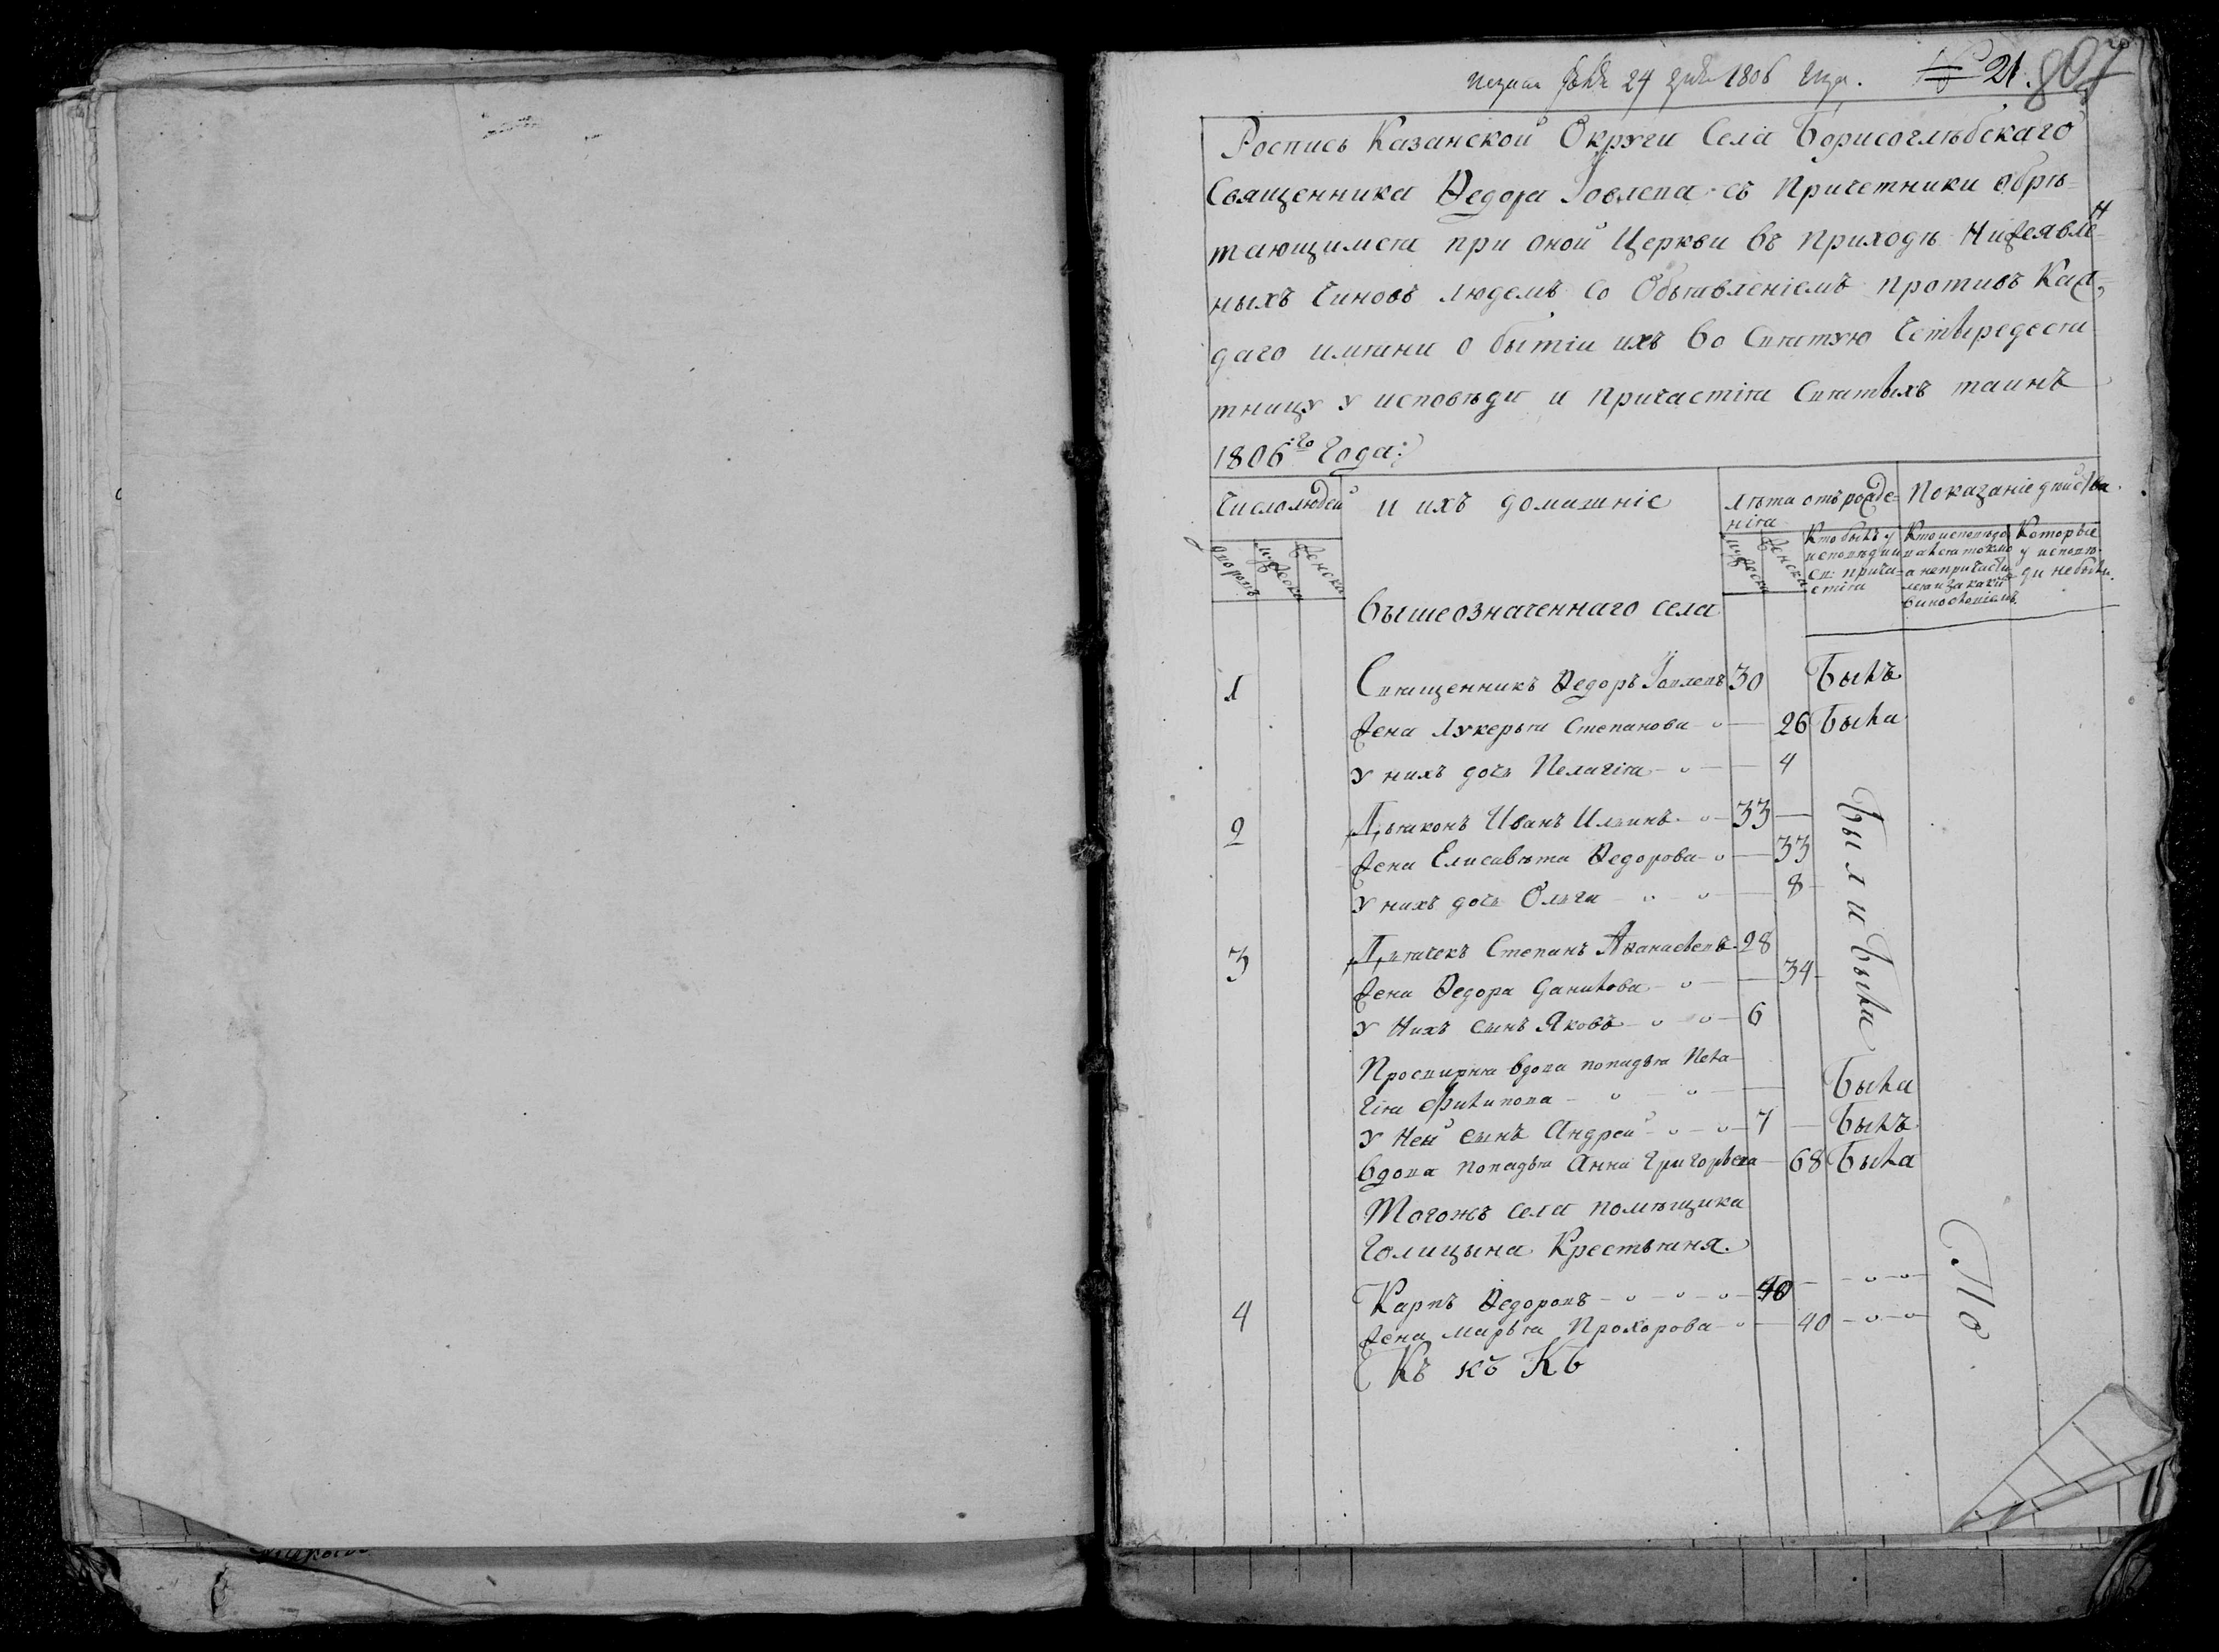 24 1806 года. № 21. 807
Роспись Казанской Округи Села Борисоглѣбскаго
Священника Ѳедора Іовлева съ Причетники обрѣ-
тающимся при оной Церкви въ приходѣ Нижеявлен-
ныхъ Чиновъ людемъ со Объявленіемъ противъ Каж-
даго имяни о бытіи ихъ во Святую Четыредеся
тницу у исповѣди и причастія Святыхъ таинъ
1806го Года:
Число людей
и ихъ домашніе
Лѣта отъ рожде-
нія
Показаніе дѣйства.
дворовъ
мужеска
женска
мужеска
женска
Кто былъ у
исповѣди и
св: прича-
стія
Кто исповѣдо
вался токмо
а непричасти
лся и за какимъ
винословіемъ.
Которые
у исповѣ-
ди небыли.
вышеозначеннаго села
1 Священникъ Ѳедоръ Іовлевъ 30 Былъ
Жена Лукерья Степанова 26 Была
У нихъ дочь Пелагія 4
2 Дьяконъ Иванъ Ильинъ 33
Жена Елисавѣта Ѳедорова 33
У нихъ дочь Ольга 8
Были
3 Дьячекъ Степанъ Аѳанасьевъ 28
Жена Ѳедора Данилова 34
У Нихъ сынъ Яковъ 6
Была
Просвирня вдова попадья Пела-
гія Филипова Была
У Ней сынъ Андрей 7 Былъ
вдова попадья Анна Григорьева 68 Была
Тогожъ села помѣщика
Голицына Крестьяня.
4 Карпъ Ѳедоровъ 40
Жена Марья Прохорова 40
Къ къ Къ
По